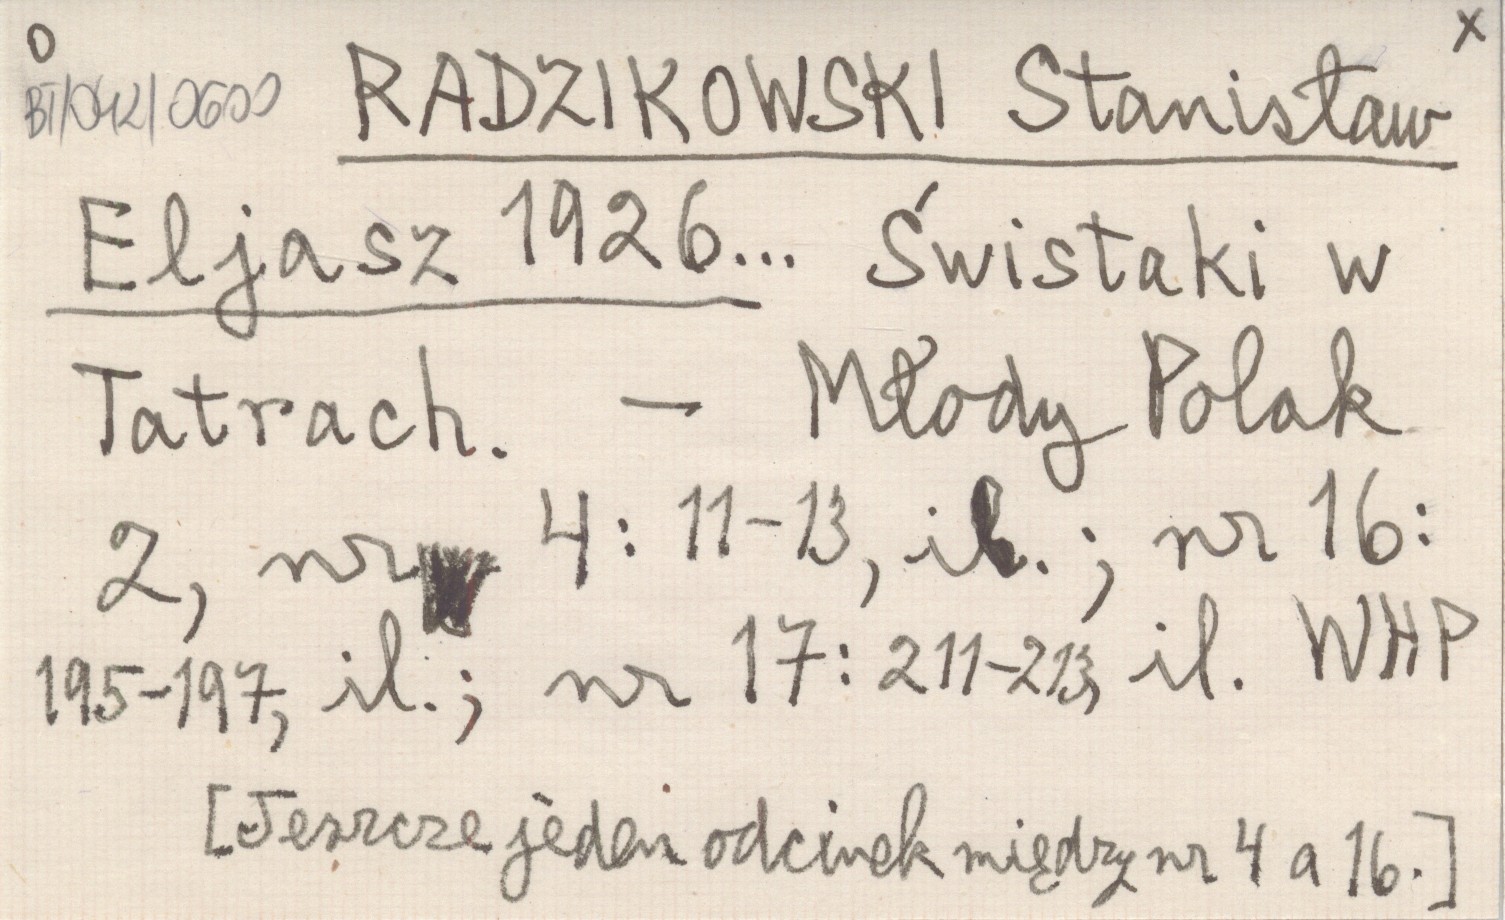 O x
RADZIKOWSKI Stanisław
Eljasz 1926... Świstaki w
Tatrach. — Młody Polak
2, nr 4: 11-13, il.; nr 16:
195-197, il.; nr 17: 211-213, il. WHP
[Jeszcze jeden odcinek między nr 4 a 16.]